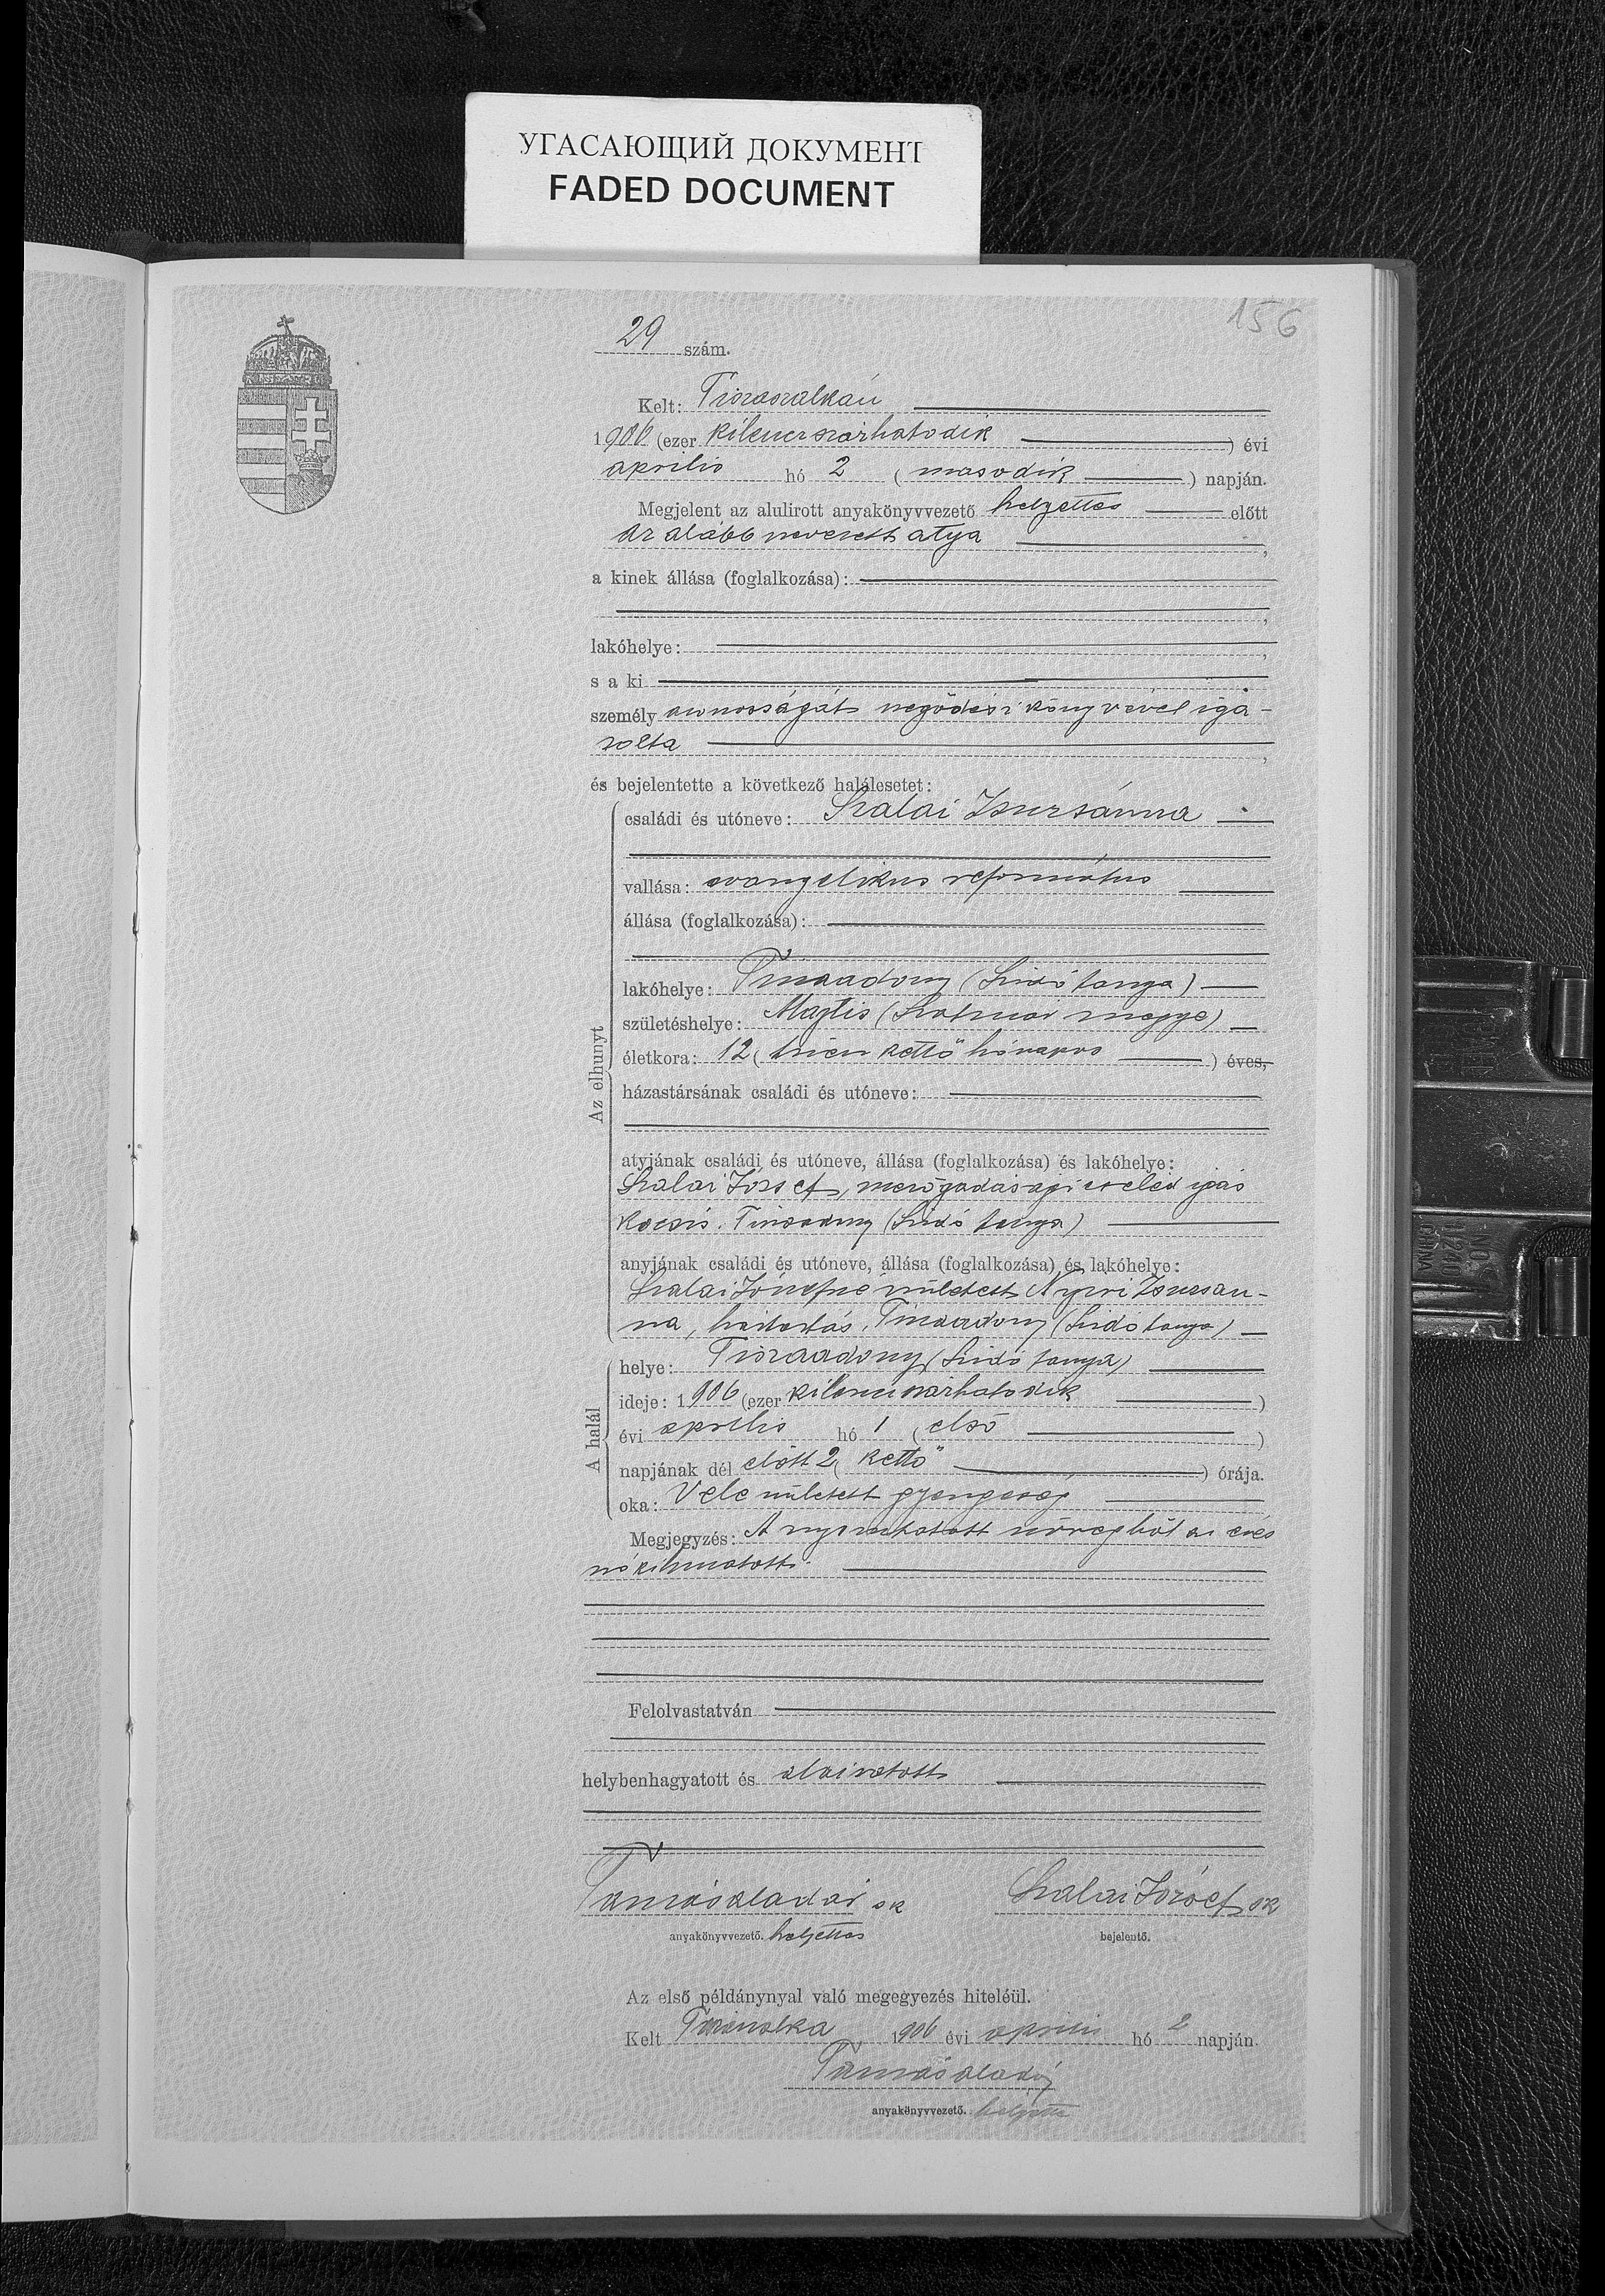 УГАСАЮЩИЙ ДОКУМЕНТ
FADED DOCUMENT
156
29 szám.
Kelt: Tiszaszalkán
1906 (ezer kilencszázhatodik) évi
aprilis hó 2 (masodik) napján.
Megjelent az alulirott anyakönyvvezető helyettes előtt
az alább nevezett atya,
a kinek állása (foglalkozása):
lakóhelye:
s a ki
személy azonosságát szegődési könyvével iga-
zolta,
és bejelentette a következő halálesetet:
Az elhunyt
családi és utóneve: Szalai Zsuzsánna
vallása: evangelikus református
állása (foglalkozása):
lakóhelye: Tiszaadony (Lidó tanya)
születéshelye: Majtis (Szatmár megye)
életkora: 12 (tizen kettő hónapos) éves,
házastársának családi és utóneve:
atyjának családi és utóneve, állása (foglalkozása) és lakóhelye:
Szalai József, mezőgadasági cseléd igás
kocsis. Tiszaadony (Lidó tanya)
anyjának családi és utóneve, állása (foglalkozása) és lakóhelye:
Szalai Józsefné született Nyiri Zsuzsan-
na, háztartás, Tiszaadony (Lidó tanya)
A halál
helye: Tiszaadony (Lidó tanya)
ideje: 1906 (ezer kilencszázhatodik)
évi aprilis hó 1 (első)
napjának dél előtt 2 (kettő) órája.
oka: Vele született gyengeség
Megjegyzés: A nyomtatott szövegből az éves
szó kihuzatott.
Felolvastatván
helybenhagyatott és aláiratott
Tamás aladár sk Szalai József sk
anyakönyvvezető. helyettes bejelentő.
Az első példánynyal való megegyezés hiteléül.
Kelt Tiszaszalka 1906 évi aprilis hó 2 napján.
Tamás aladár
anyakönyvvezető. helyettes